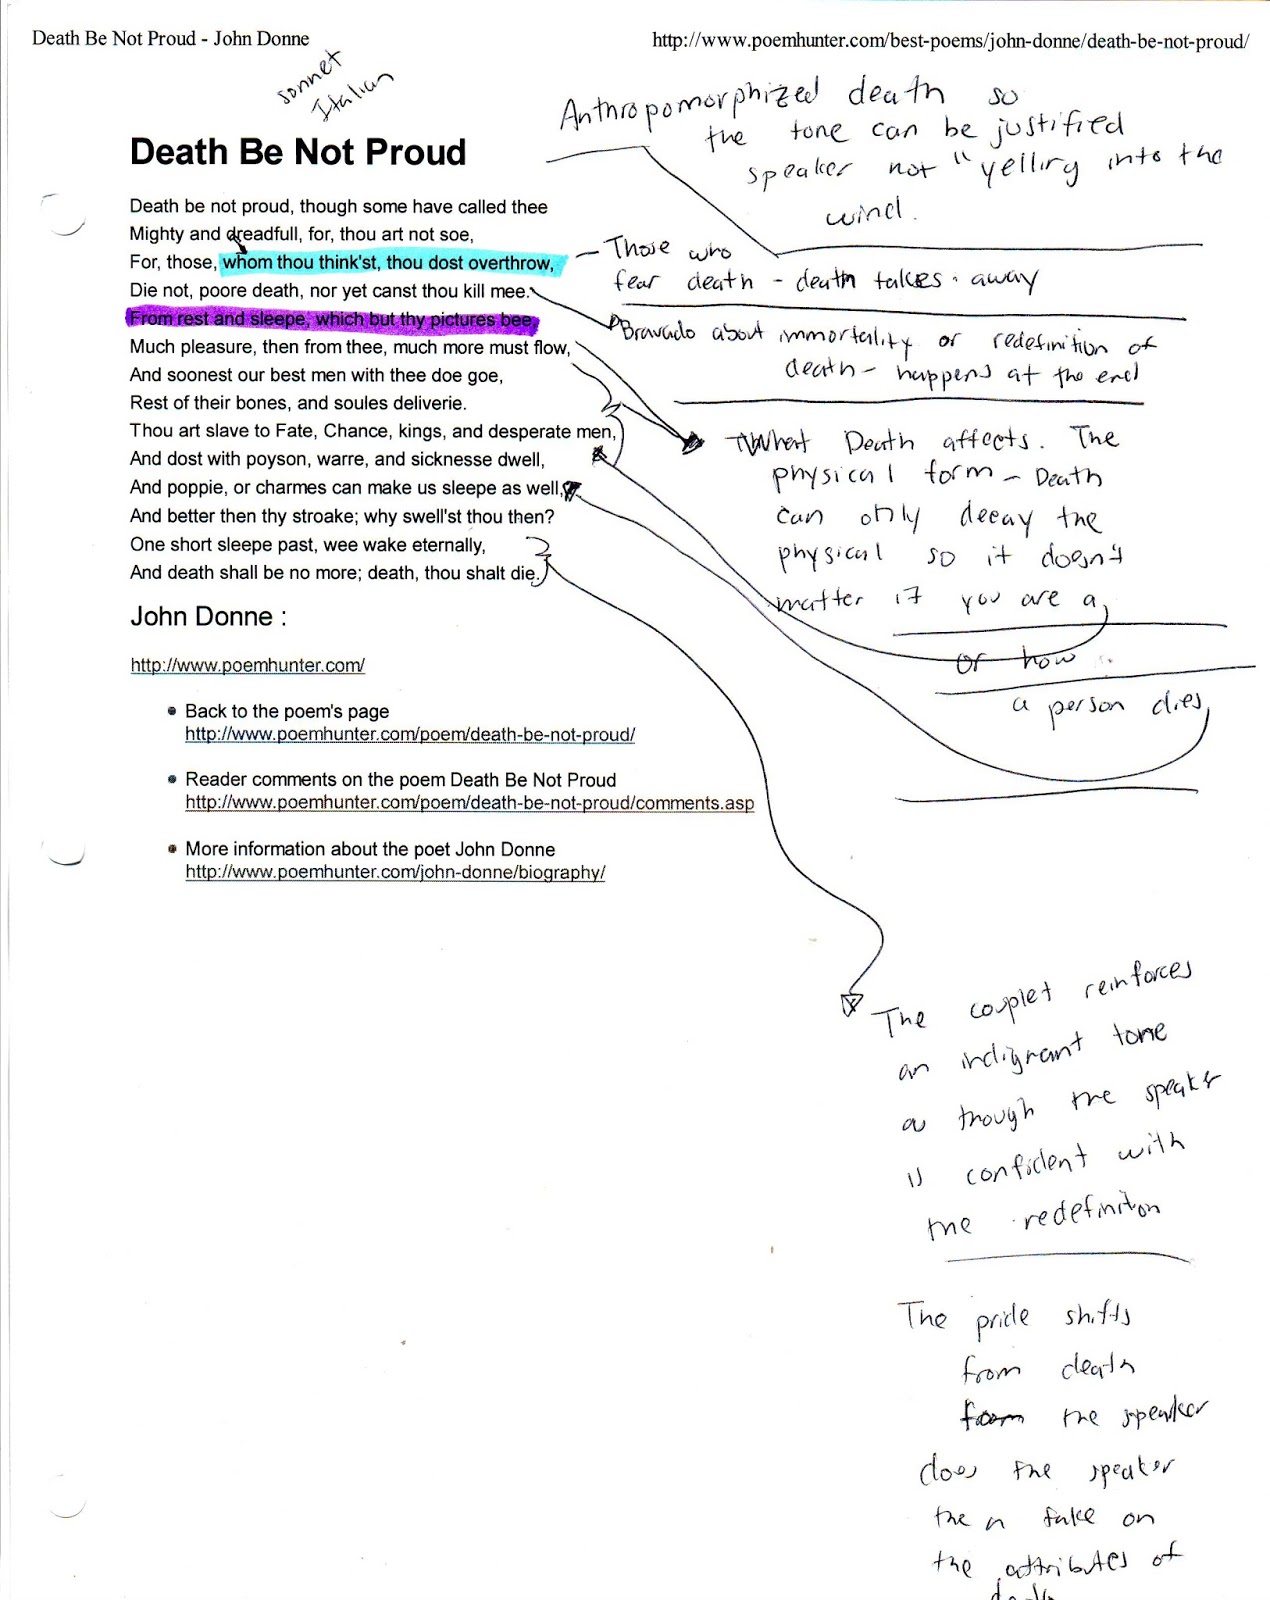 Death Be Not Proud - John Donne
http://www.poemhunter.com/best-poems/john-donne/death-be-not-proud/
sonnet
Italian
Anthropomorphized death so
the tone can be justified
speaker not "yelling into the
wind.
Death Be Not Proud
Death be not proud, though some have called thee
Mighty and dreadfull, for, thou art not soe,
For, those, whom thou think'st, thou dost overthrow,
Die not, poore death, nor yet canst thou kill mee.
From rest and sleepe, which but thy pictures bee,
Much pleasure, then from thee, much more must flow,
And soonest our best men with thee doe goe,
Rest of their bones, and soules deliverie.
Thou art slave to Fate, Chance, kings, and desperate men,
And dost with poyson, warre, and sicknesse dwell,
And poppie, or charmes can make us sleepe as well,
And better then thy stroake; why swell'st thou then?
One short sleepe past, wee wake eternally,
And death shall be no more; death, thou shalt die.
Those who
fear death - death takes away
Bravado about immortality or redefinition of
death - happens at the end
What Death affects. The
physical form - Death
can only decay the
physical so it doesn't
matter if you are a
or how
a person dies
John Donne :
http://www.poemhunter.com/
• Back to the poem's page
http://www.poemhunter.com/poem/death-be-not-proud/
• Reader comments on the poem Death Be Not Proud
http://www.poemhunter.com/poem/death-be-not-proud/comments.asp
• More information about the poet John Donne
http://www.poemhunter.com/john-donne/biography/
The couplet reinforces
an indignant tone
as though the speaker
is confident with
the redefiniton
The pride shifts
from death
from the speaker
does the speaker
then take on
the attributes of